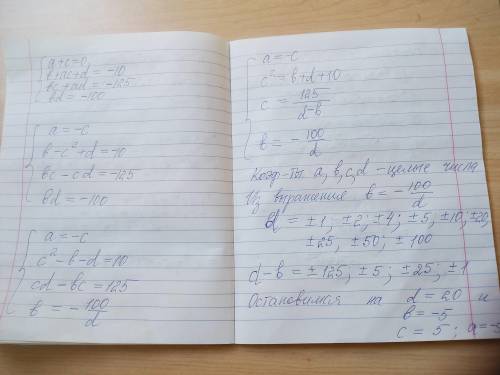 a+c=0
b+ac+d=-10
bc+ad=-125
bd=-100
a=-c
b-c²+d=-10
bc-cd=-125
bd=-100
a=-c
c²-b-d=10
cd-bc=125
b=-100/d
a=-c
c²=b+d+10
c=125/(d-b)
b=-100/d
Коэф-ты a,b,c,d - целые числа
Из выражения b=-100/d
d=±1; ±2; ±4; ±5; ±10; ±20;
±25; ±50; ±100
d-b=±125; ±5; ±25; ±1
Остановимся на d=20 и
b=-5
c=5; a=-5